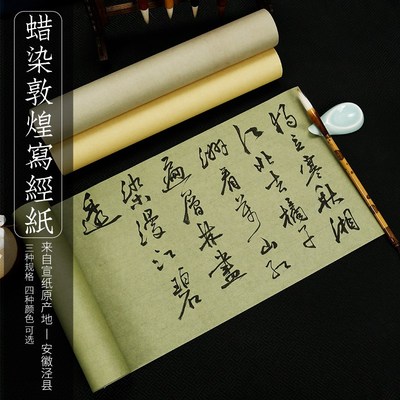 蜡染敦煌寫經紙
来自宣纸原产地—安徽泾县
三种规格 四种颜色 可选
独立寒秋湘
江北去橘子
洲看萬山红
遍層林盡
染漫江碧
透